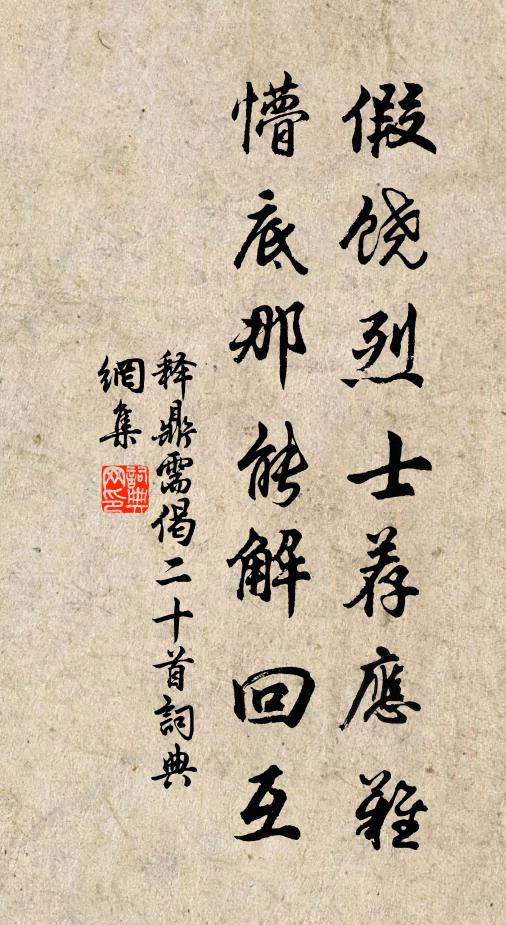 假饶烈士荐應難
懵底那能解回互
释鼎需偈二十首詞典
網集
詞典
网印